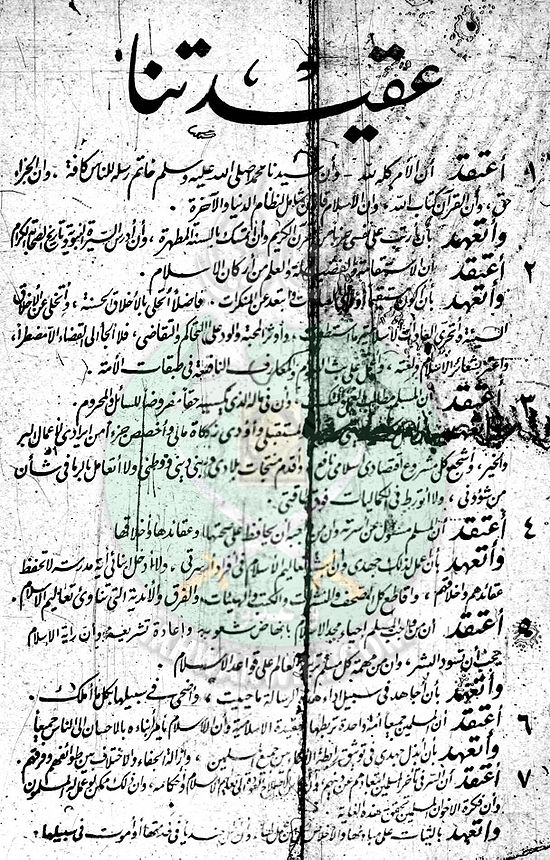 عقيدتنا
١ أعتقد أن الأمر كله لله وأن سيدنا محمد صلى الله عليه وسلم خاتم رسله للناس كافة ، وأن الجزاء
حق ، وأن القرآن كتاب الله ، وأن الإسلام شامل لنظام الدنيا والآخرة .
وأتعهد بأن أرتب على نفسي جزءاً من القرآن الكريم وأن أتمسك بالسنة المطهرة ، وأن أدرس السيرة النبوية وتاريخ الصحابة الكرام
٢ أعتقد أن الاستقامة والفضيلة والعلم من أركان الإسلام .
وأتعهد بأن أكون مستقيماً أؤدي العبادات وابتعد عن المنكرات ، فاضلاً أتحلى بالأخلاق الحسنة ، وأتخلى عن الأخلاق
السيئة وأتحرى العادات الإسلامية ما استطعت ، وأوثر المحبة والود على التحاكم والتقاضي ، فلا ألجأ إلى القضاء إلا مضطراً ،
وأعتز بشعائر الإسلام ولغته ، وأعمل على بث العلوم والمعارف النافعة في طبقات الأمة .
٣ أعتقد أن المسلم مطالب بالعمل والتكسب ، وأن في ماله الذي يكسبه حقاً مفروضاً للسائل والمحروم .
وأتعهد بأن أعمل لكسب مستقبلي وأؤدي زكاة مالي وأخصص جزءاً من إيرادي لأعمال البر
والخير ، وأشجع كل مشروع اقتصادي إسلامي نافع ، وأقدم منتجات بلادي وبني ديني ووطني ولا أتعامل بالربا في شأن
من شؤوني ، ولا أتورط في الكماليات فوق طاقتي .
٤ أعتقد أن المسلم مسئول عن أسرته وأن من واجبه أن يحافظ على صحتها وعقائدها وأخلاقها
وأتعهد بأن أعمل لذلك جهدي وأن أبث تعاليم الإسلام في أفراد أسرتي ، ولا أدخل أبنائي أية مدرسة لا تحفظ
عقائدهم وأخلاقهم ، وأقاطع كل الصحف والنشرات والكتب والهيئات والفرق والأندية التي تناوئ تعاليم الإسلام .
٥ أعتقد أن من واجب المسلم إحياء مجد الإسلام بإنهاض شعوبه وإعادة تشريعه وأن راية الإسلام
يجب أن تسود البشر ، وأن من مهمة كل مسلم تربية العالم على قواعد الإسلام .
وأتعهد بأن أجاهد في سبيل أداء هذه الرسالة ما حييت ، وأضحي في سبيلها بكل ما أملك .
٦ أعتقد أن المسلمين جميعاً أمة واحدة تربطها العقيدة الإسلامية وأن الإسلام يأمر أبناءه بالإحسان إلى الناس جميعاً
وأتعهد بأن أبذل جهدي في توثيق رابطة الإخاء بين جميع المسلمين ، وإزالة الجفاء والاختلاف بين طوائفهم وفرقهم .
٧ أعتقد أن السر في تأخر المسلمين ابتعادهم عن دينهم وأن أساس الإصلاح العودة إلى تعاليم الإسلام وأحكامه ، وأن ذلك ممكن لو عمل له المسلمون
وأن فكرة الإخوان المسلمين تحقق هذه الغاية
وأتعهد بالثبات على مبادئها والإخلاص لكل من عمل لها ، وأن أظل جندياً في خدمتها أو أموت في سبيلها .